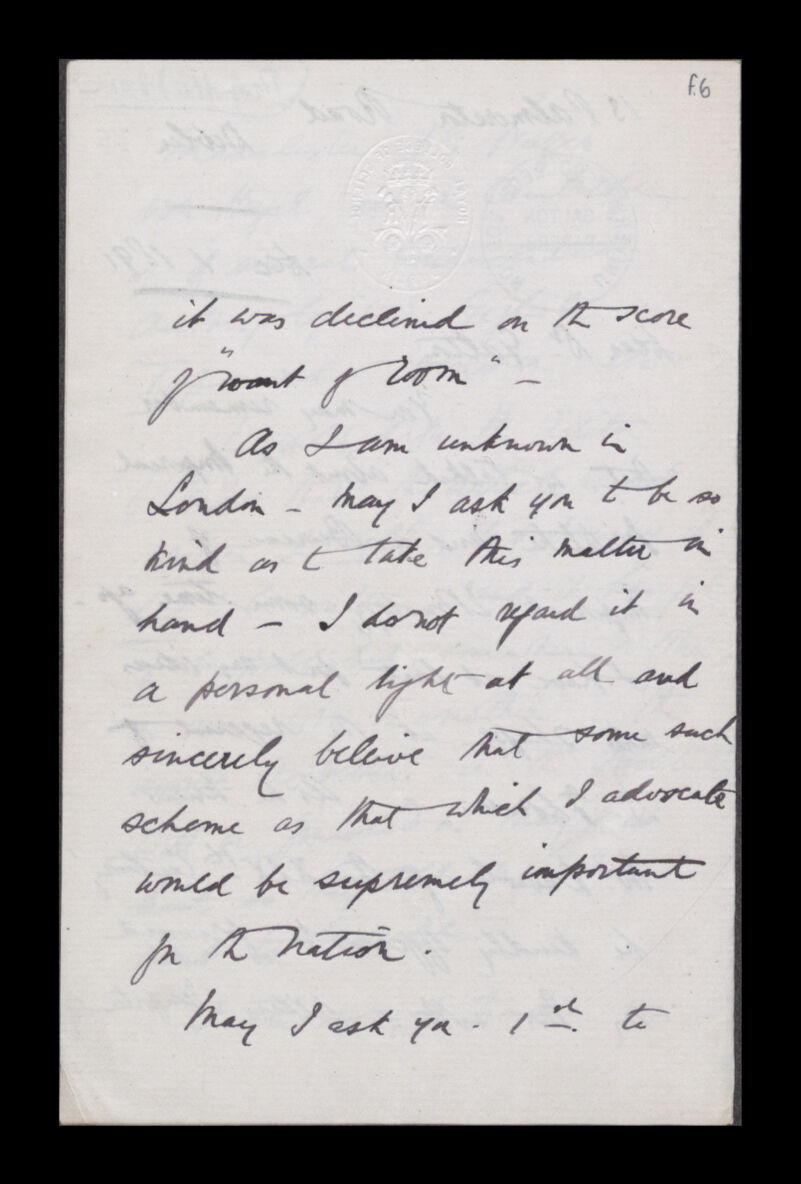 f.6
it was declined on the score
of "want of room" –
As I am unknown in
London – May I ask you to be so
kind as to take this matter in
hand – I do not regard it in
a personal light at all and
sincerely beleive that some such
scheme as that which I advocate
would be supremely important
for the nation.
May I ask you. 1st. to